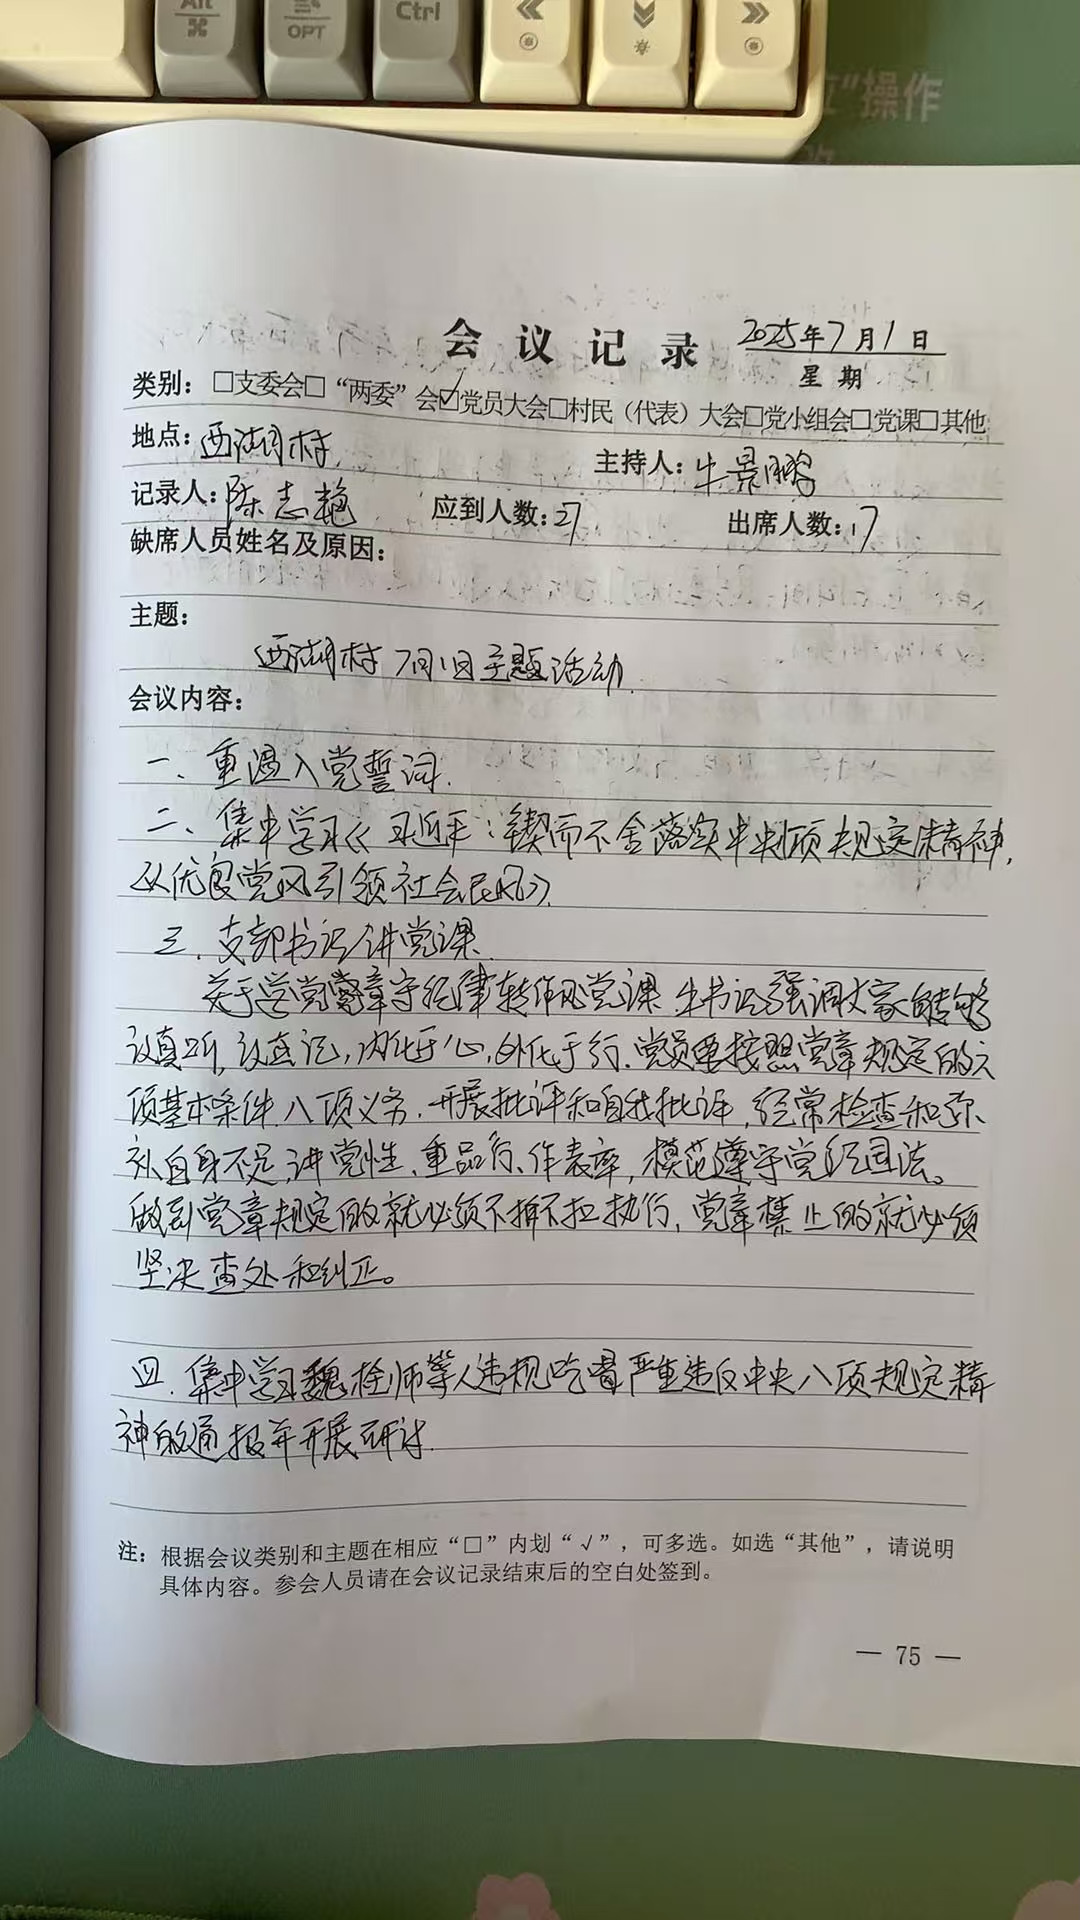 Alt
⌘
OPT
Ctrl
"操作
会议记录
2025年7月1日
星期
类别：□支委会□“两委”会☑党员大会□村民（代表）大会□党小组会□党课□其他
地点：西湖村
主持人：牛景鹏
记录人：陈志艳
应到人数：27
出席人数：17
缺席人员姓名及原因：
主题：
西湖村7月1日主题活动
会议内容：
一、重温入党誓词.
二、集中学习《习近平：锲而不舍落实中央八项规定精神，
以优良党风引领社会民风》.
三、支部书记讲党课.
关于学党章守纪律转作风党课.牛书记强调大家能够
认真听，认真记，内化于心，外化于行.党员要按照党章规定的六
项基本条件八项义务.开展批评和自我批评，经常检查和弥
补自身不足，讲党性、重品行、作表率，模范遵守党纪国法。
做到党章规定的就必须不折不扣执行，党章禁止的就必须
坚决查处和纠正。
四.集中学习魏栓师等人违规吃喝严重违反中央八项规定精
神的通报并开展研讨.
注：根据会议类别和主题在相应“□”内划“√”，可多选。如选“其他”，请说明
具体内容。参会人员请在会议记录结束后的空白处签到。
— 75 —